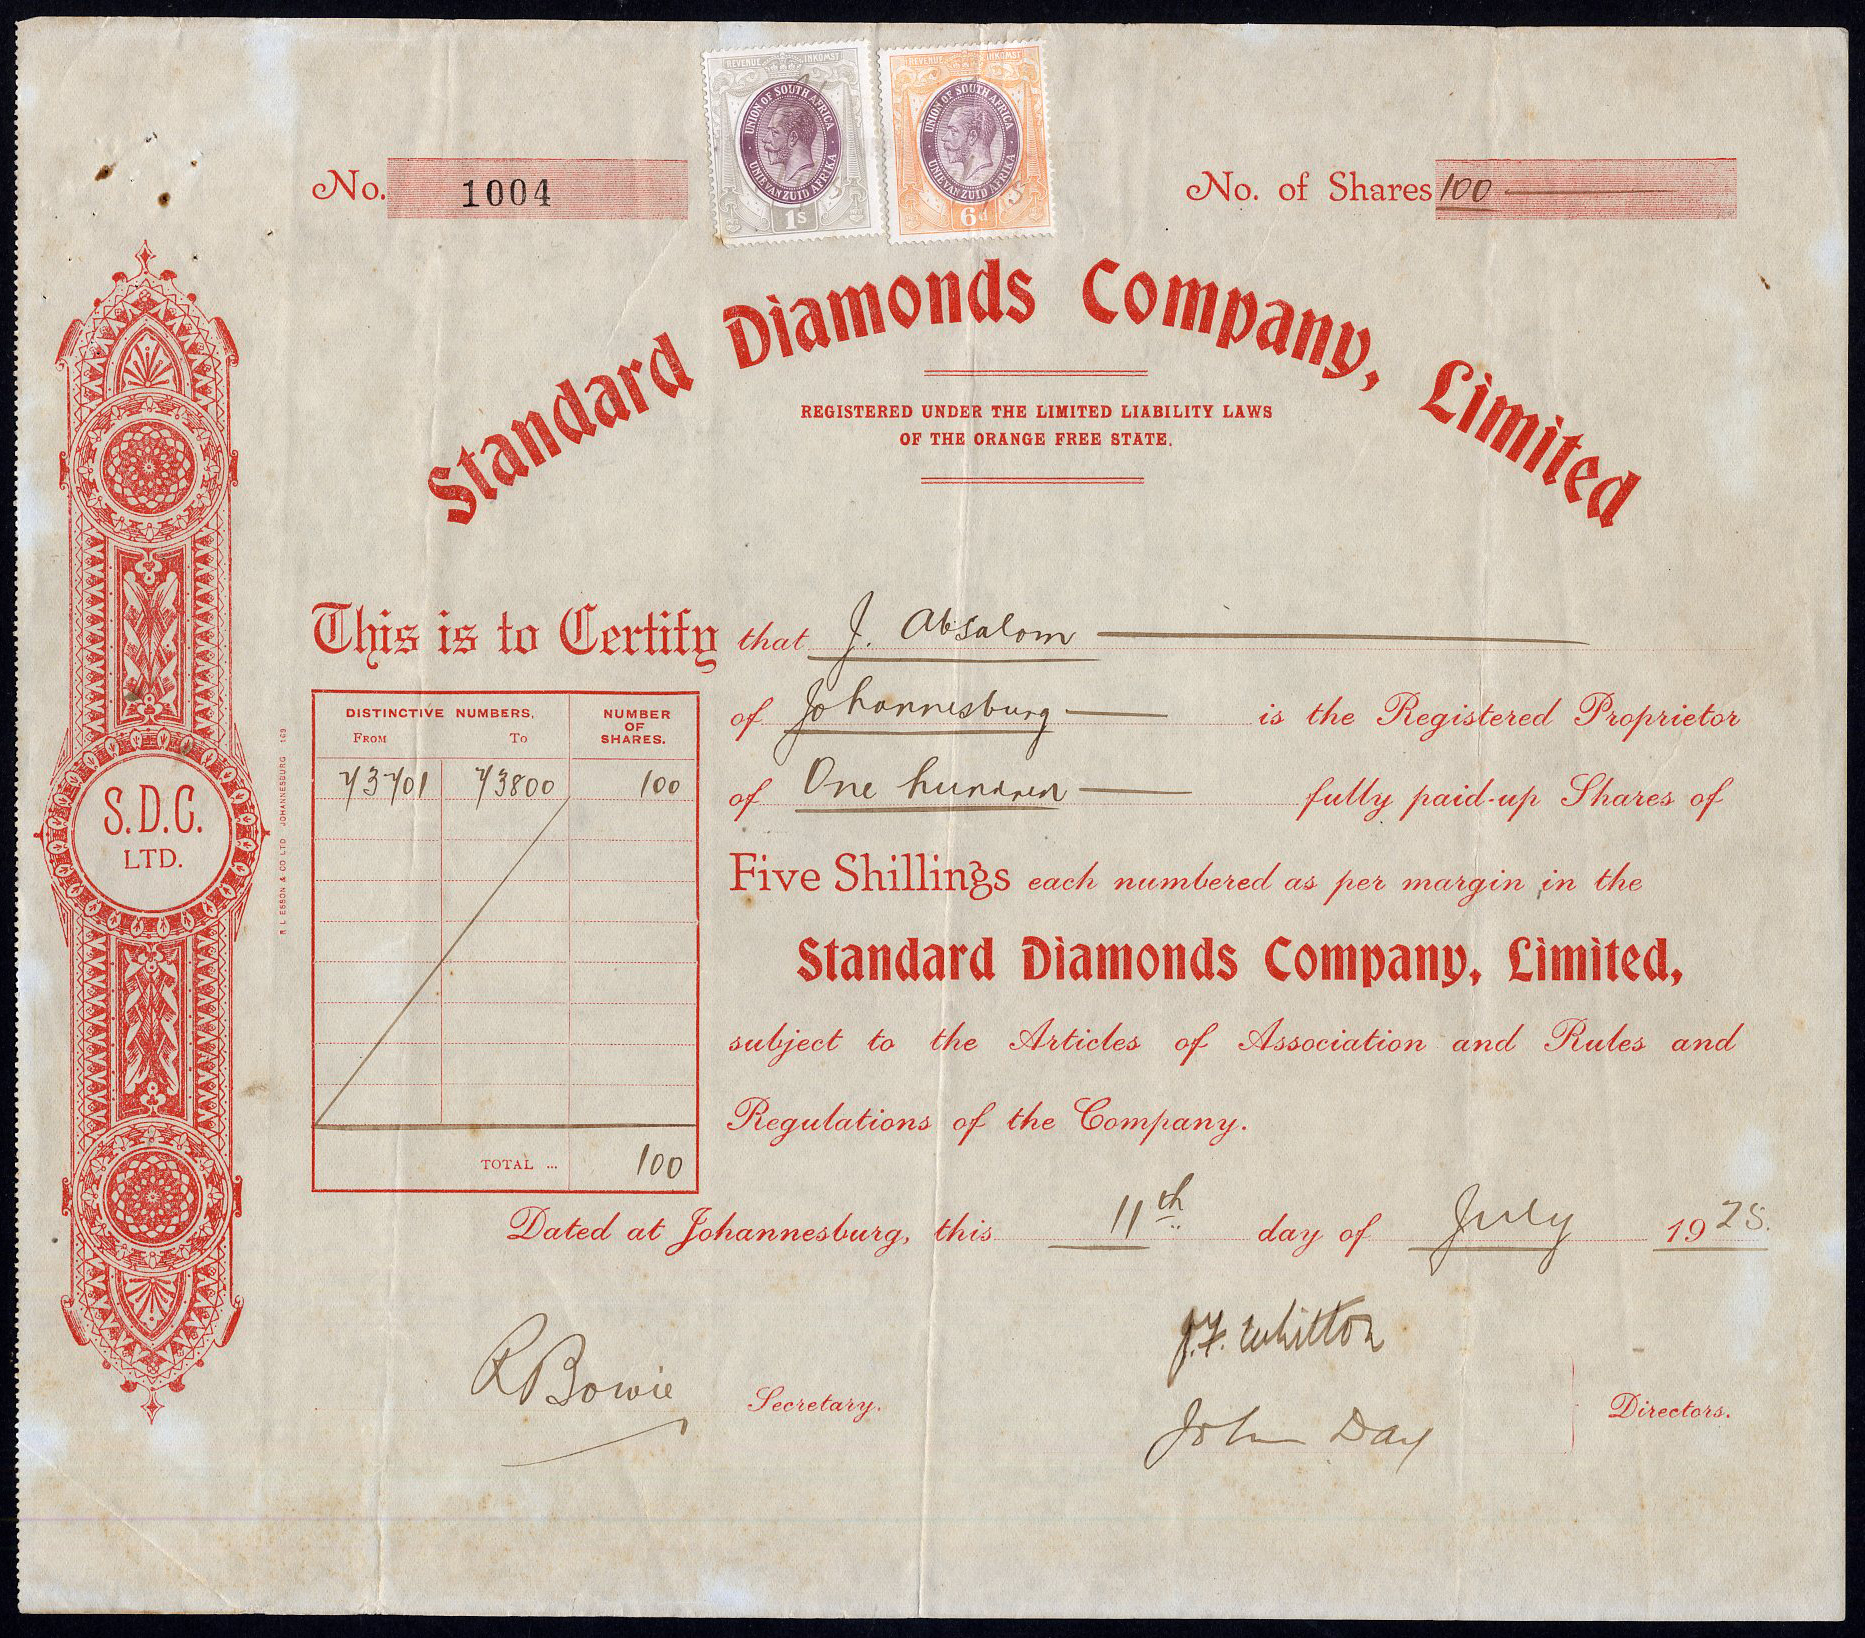 REVENUE INKOMST
UNION OF SOUTH AFRICA
UNIE VAN ZUID AFRIKA
1s
REVENUE INKOMST
UNION OF SOUTH AFRICA
UNIE VAN ZUID AFRIKA
6d
No. 1004
No. of Shares 100
Standard Diamonds Company, Limited
REGISTERED UNDER THE LIMITED LIABILITY LAWS
OF THE ORANGE FREE STATE.
This is to Certify that J. Absalom
of Johannesburg is the Registered Proprietor
of One hundred fully paid-up Shares of
Five Shillings each numbered as per margin in the
Standard Diamonds Company, Limited,
subject to the Articles of Association and Rules and
Regulations of the Company.
DISTINCTIVE NUMBERS. NUMBER OF SHARES.
FROM TO
73701 73800 100
TOTAL ... 100
S.D.C.
LTD.
R L ESSON & CO LTD JOHANNESBURG 169
Dated at Johannesburg, this 11th day of July 1925.
R Bowie Secretary.
J.F. Whitton
John Day
Directors.